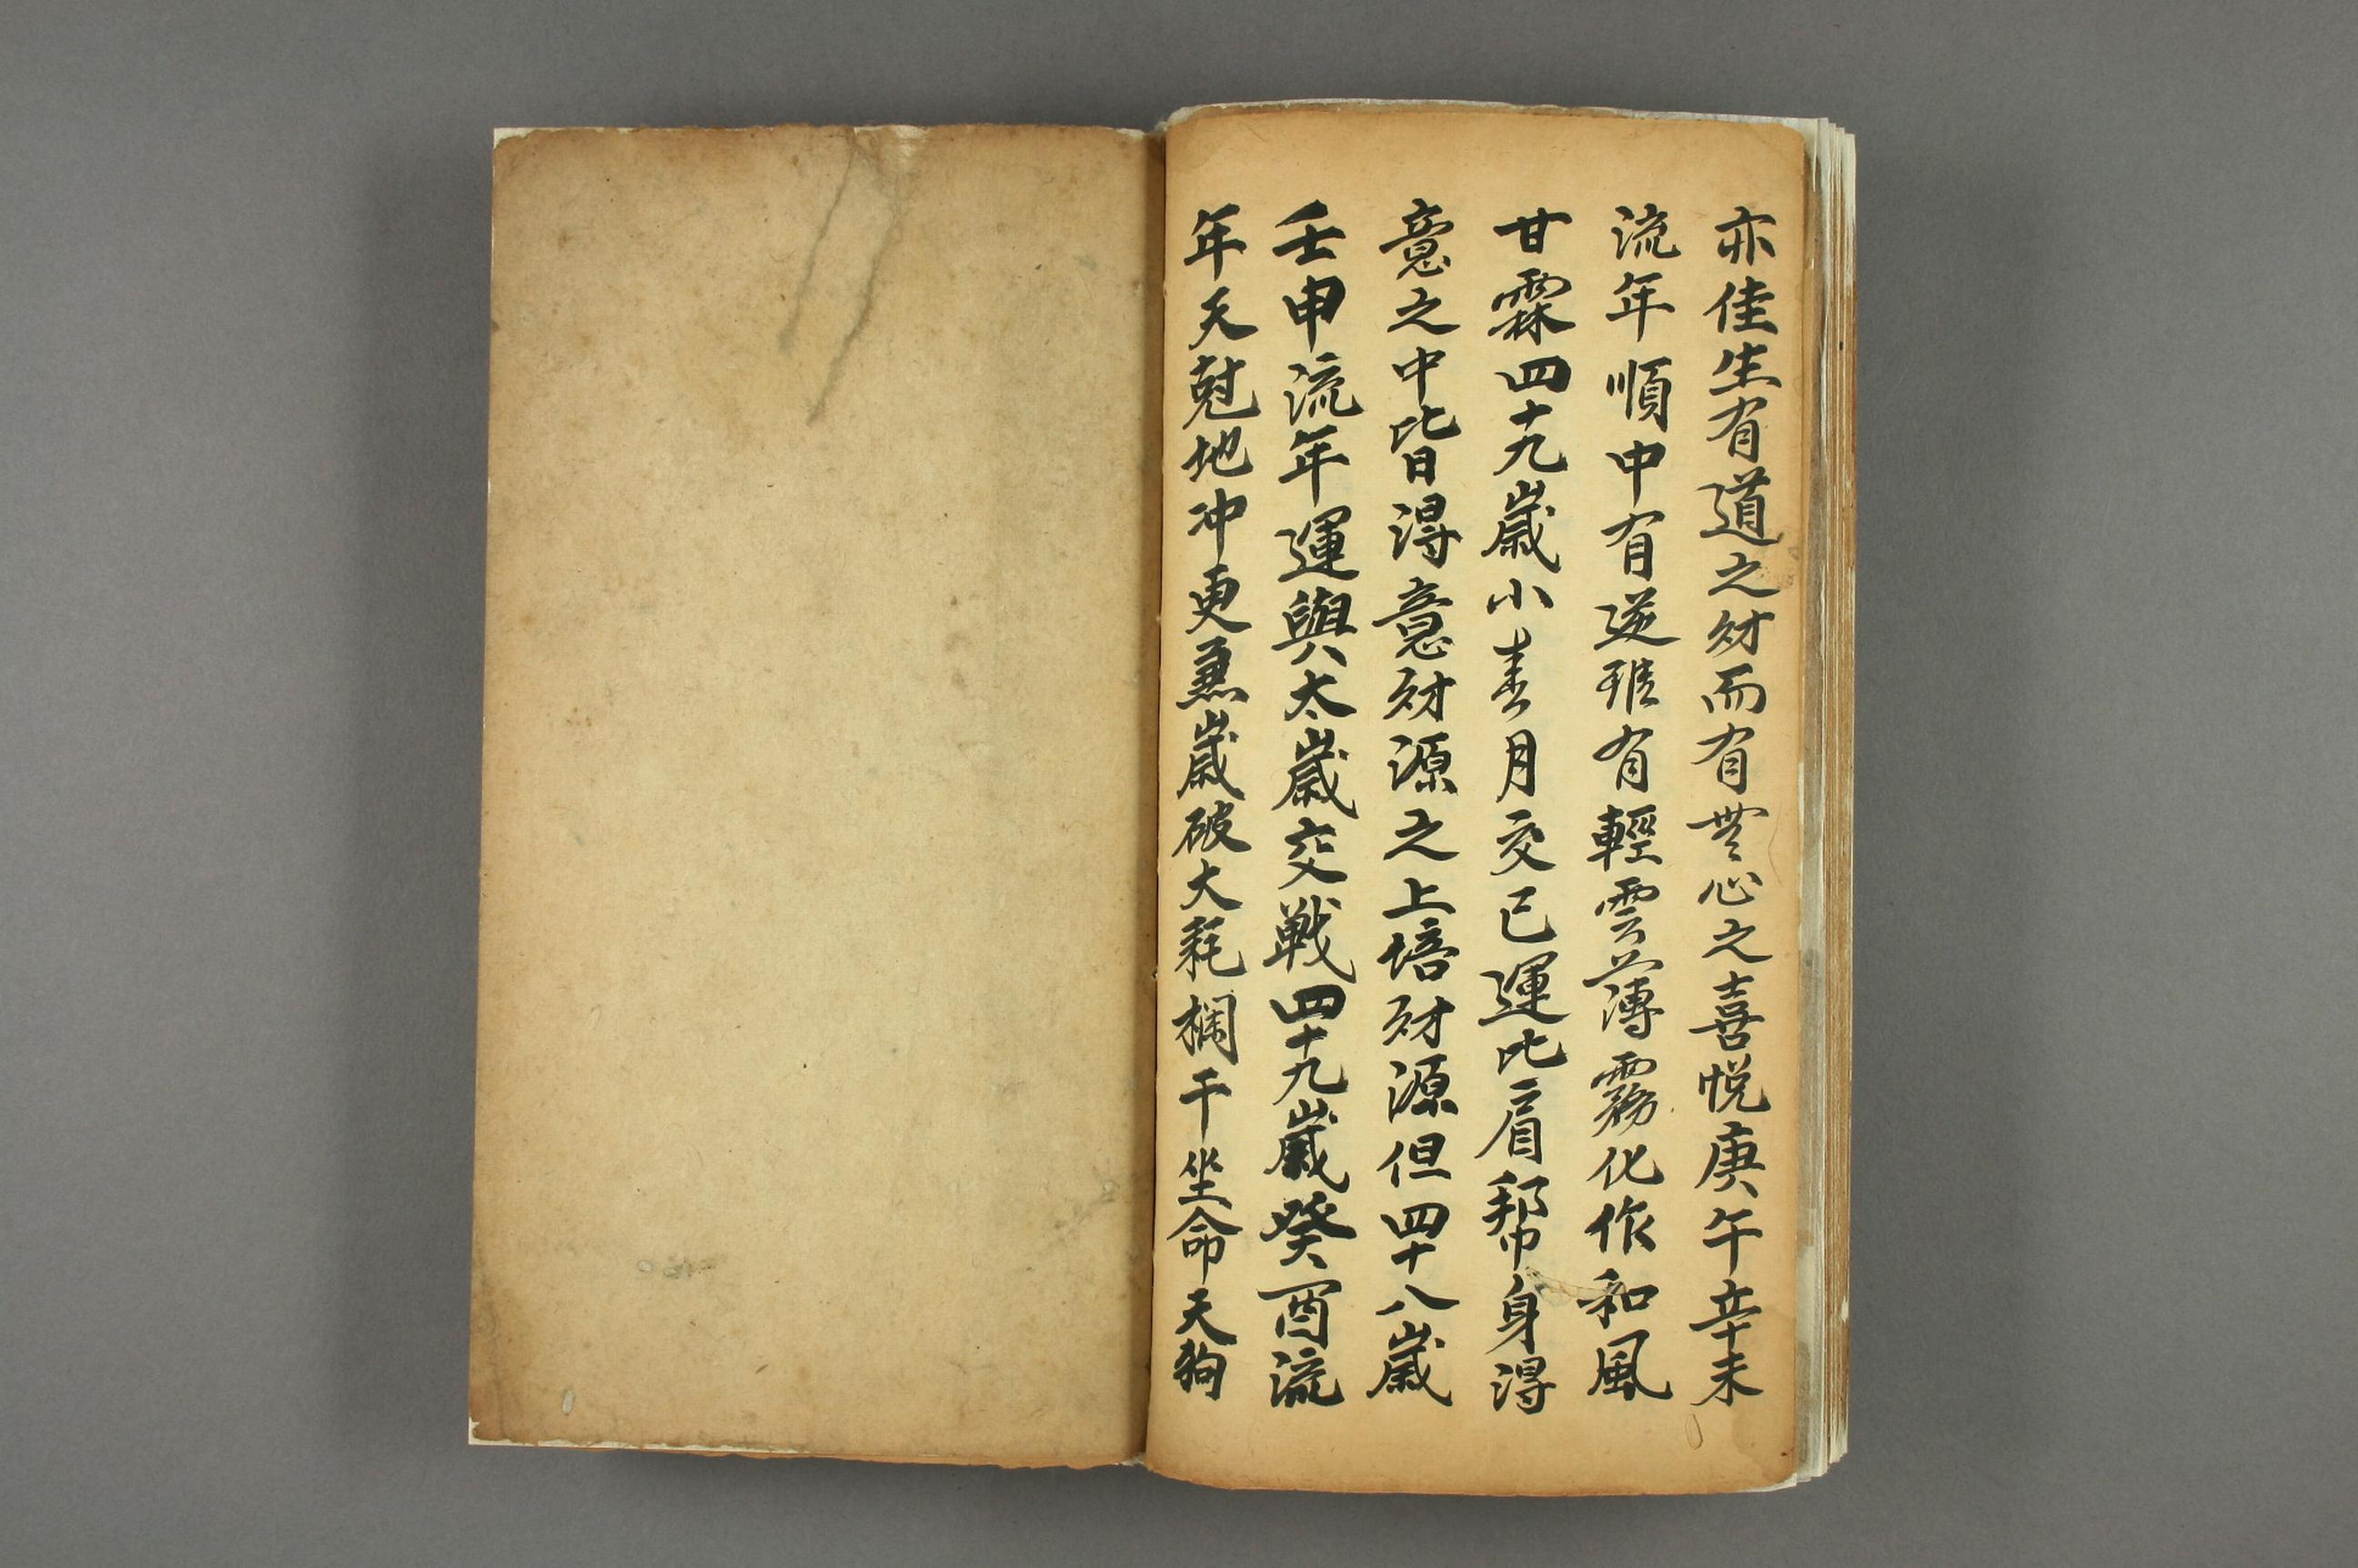 亦佳生有道之财而有無心之喜悦庚午辛未
流年順中有逆雖有輕雲薄霧化作和風
甘霖四十九歲小春月交已運比肩幇身得
意之中皆淂意财源之上培财源但四十八歲
壬申流年運與太歲交戦四十九歲癸酉流
年天尅地冲更兼歲破大耗欄干坐命天狗